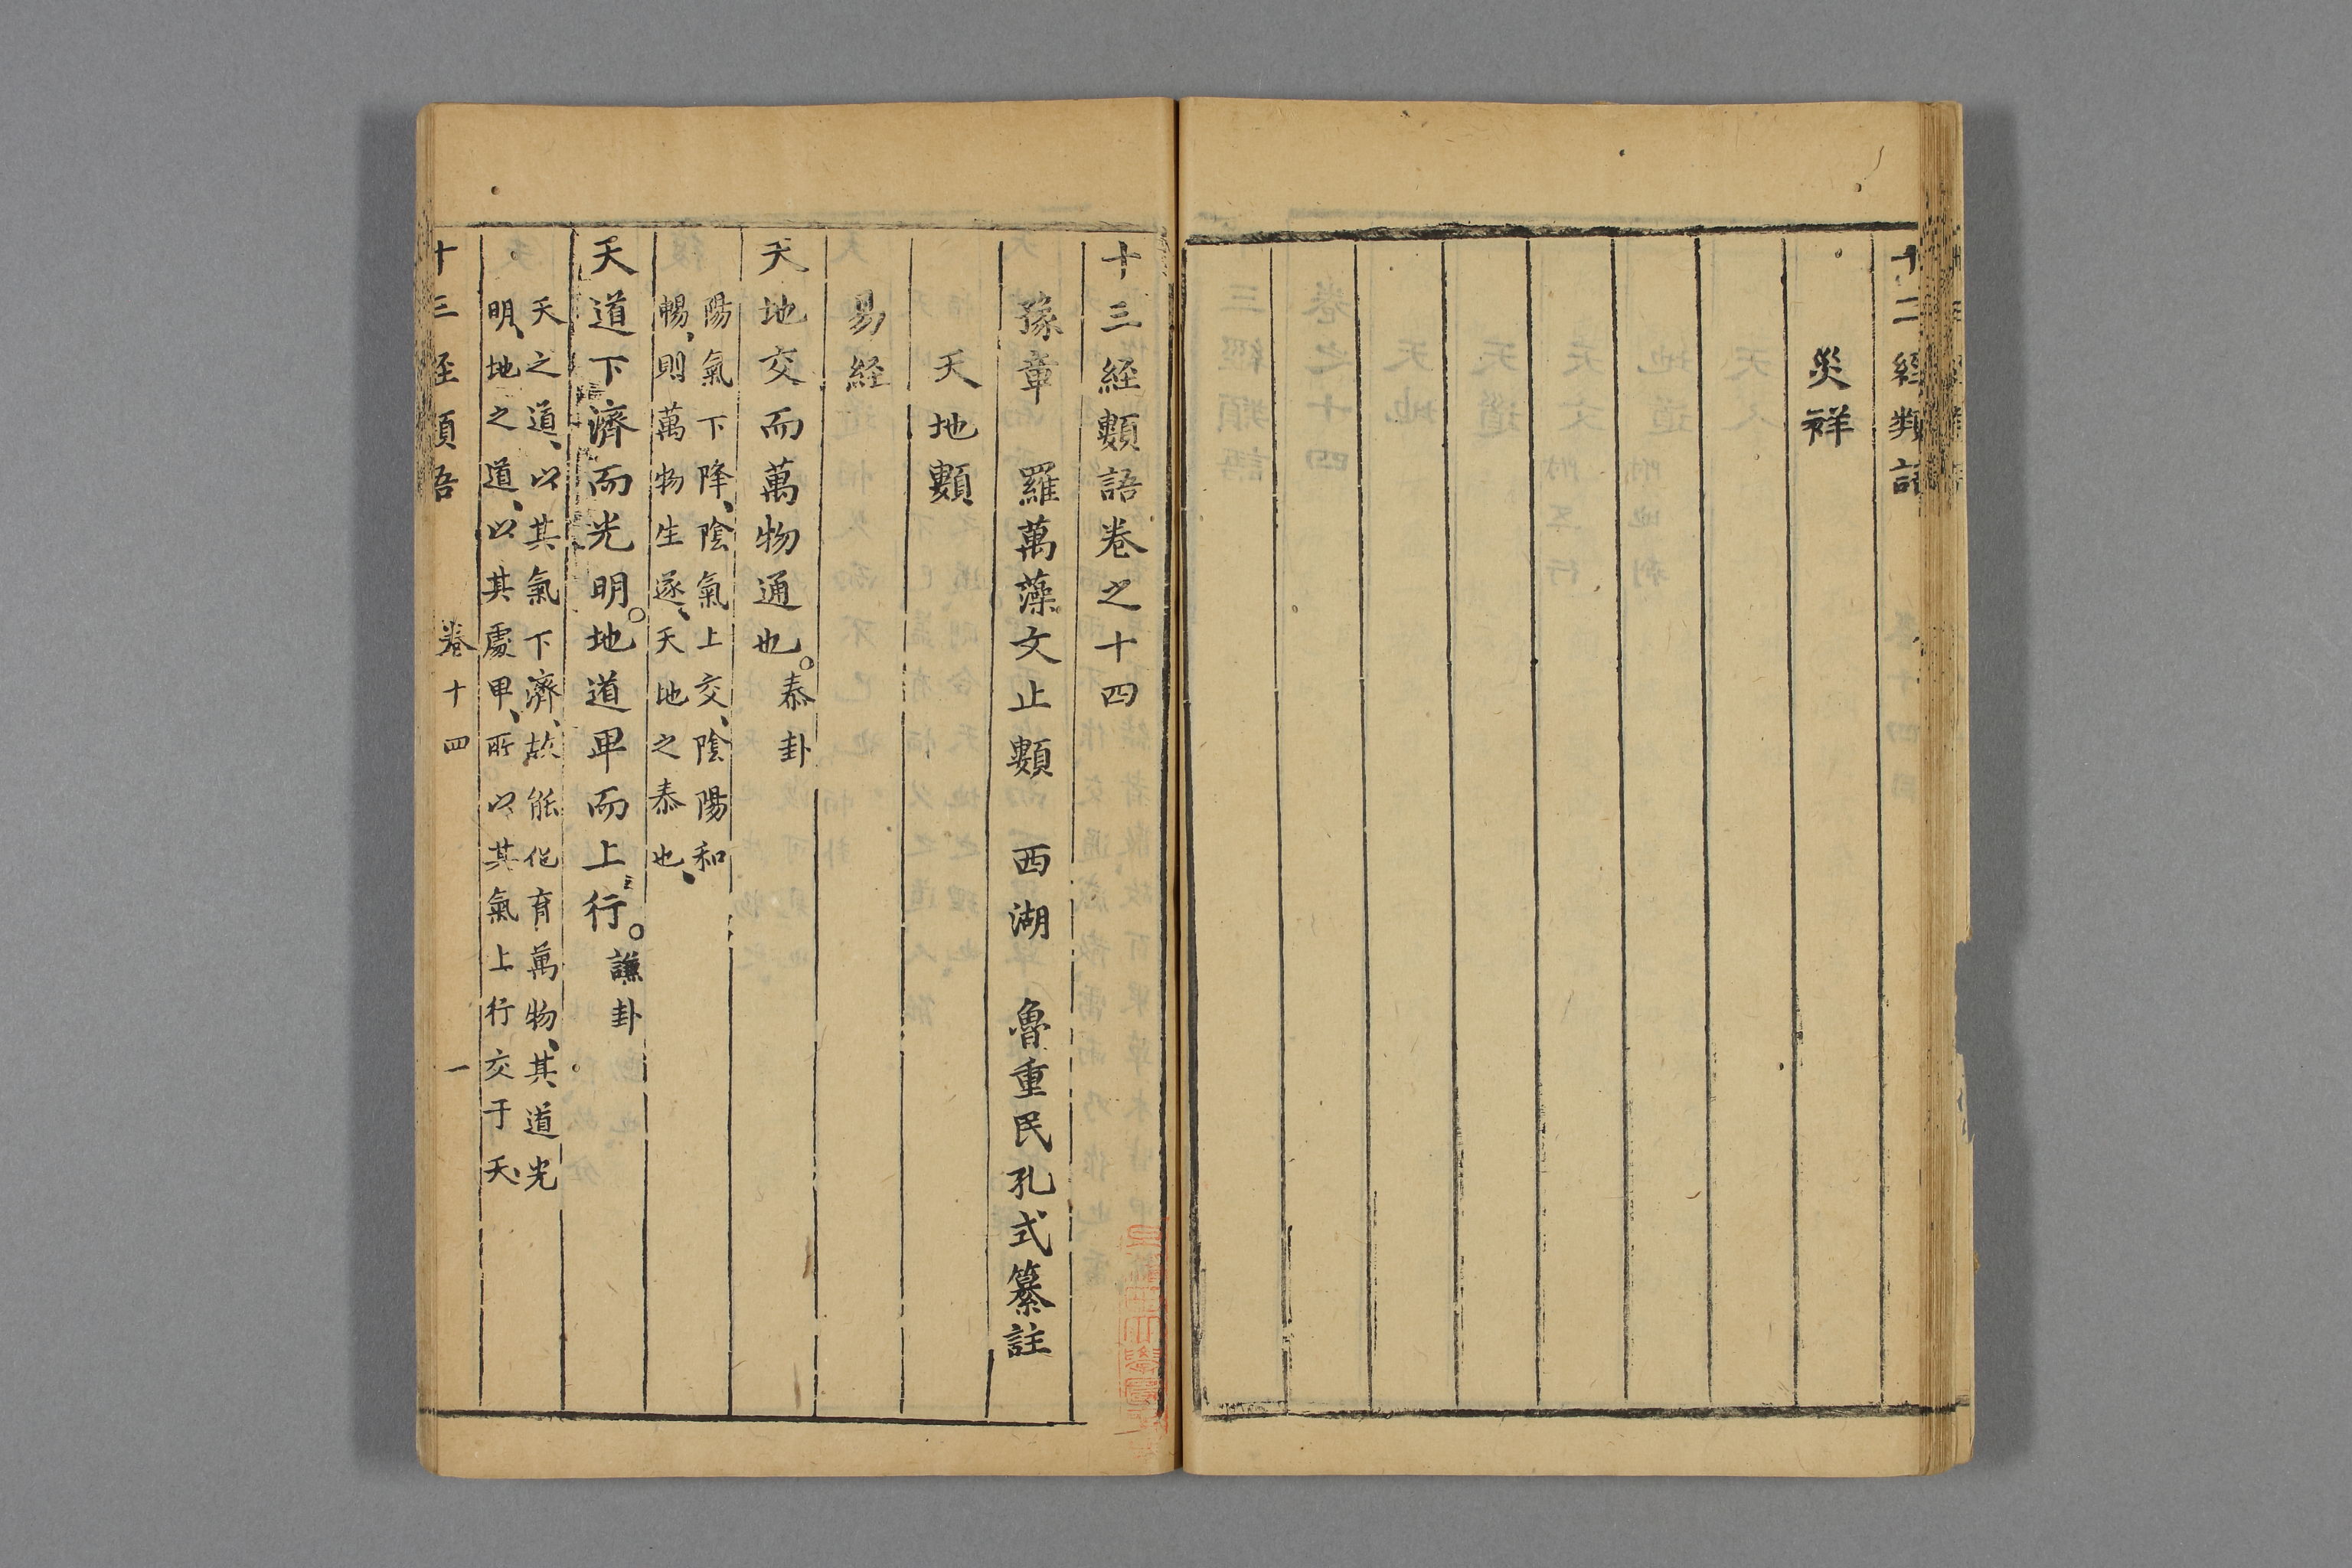 十三經類語
災祥
十三經類語卷之十四
豫章 羅萬藻文止類 西湖 魯重民孔式纂註
天地類
易経
天地交而萬物通也。泰卦
陽氣下降、陰氣上交、陰陽和
暢、則萬物生遂、天地之泰也、
天道下濟而光明。地道卑而上行。謙卦
天之道、以其氣下濟、故能化育萬物、其道光
明、地之道、以其處卑、所以其氣上行交于天、
十三経類語 卷十四 一